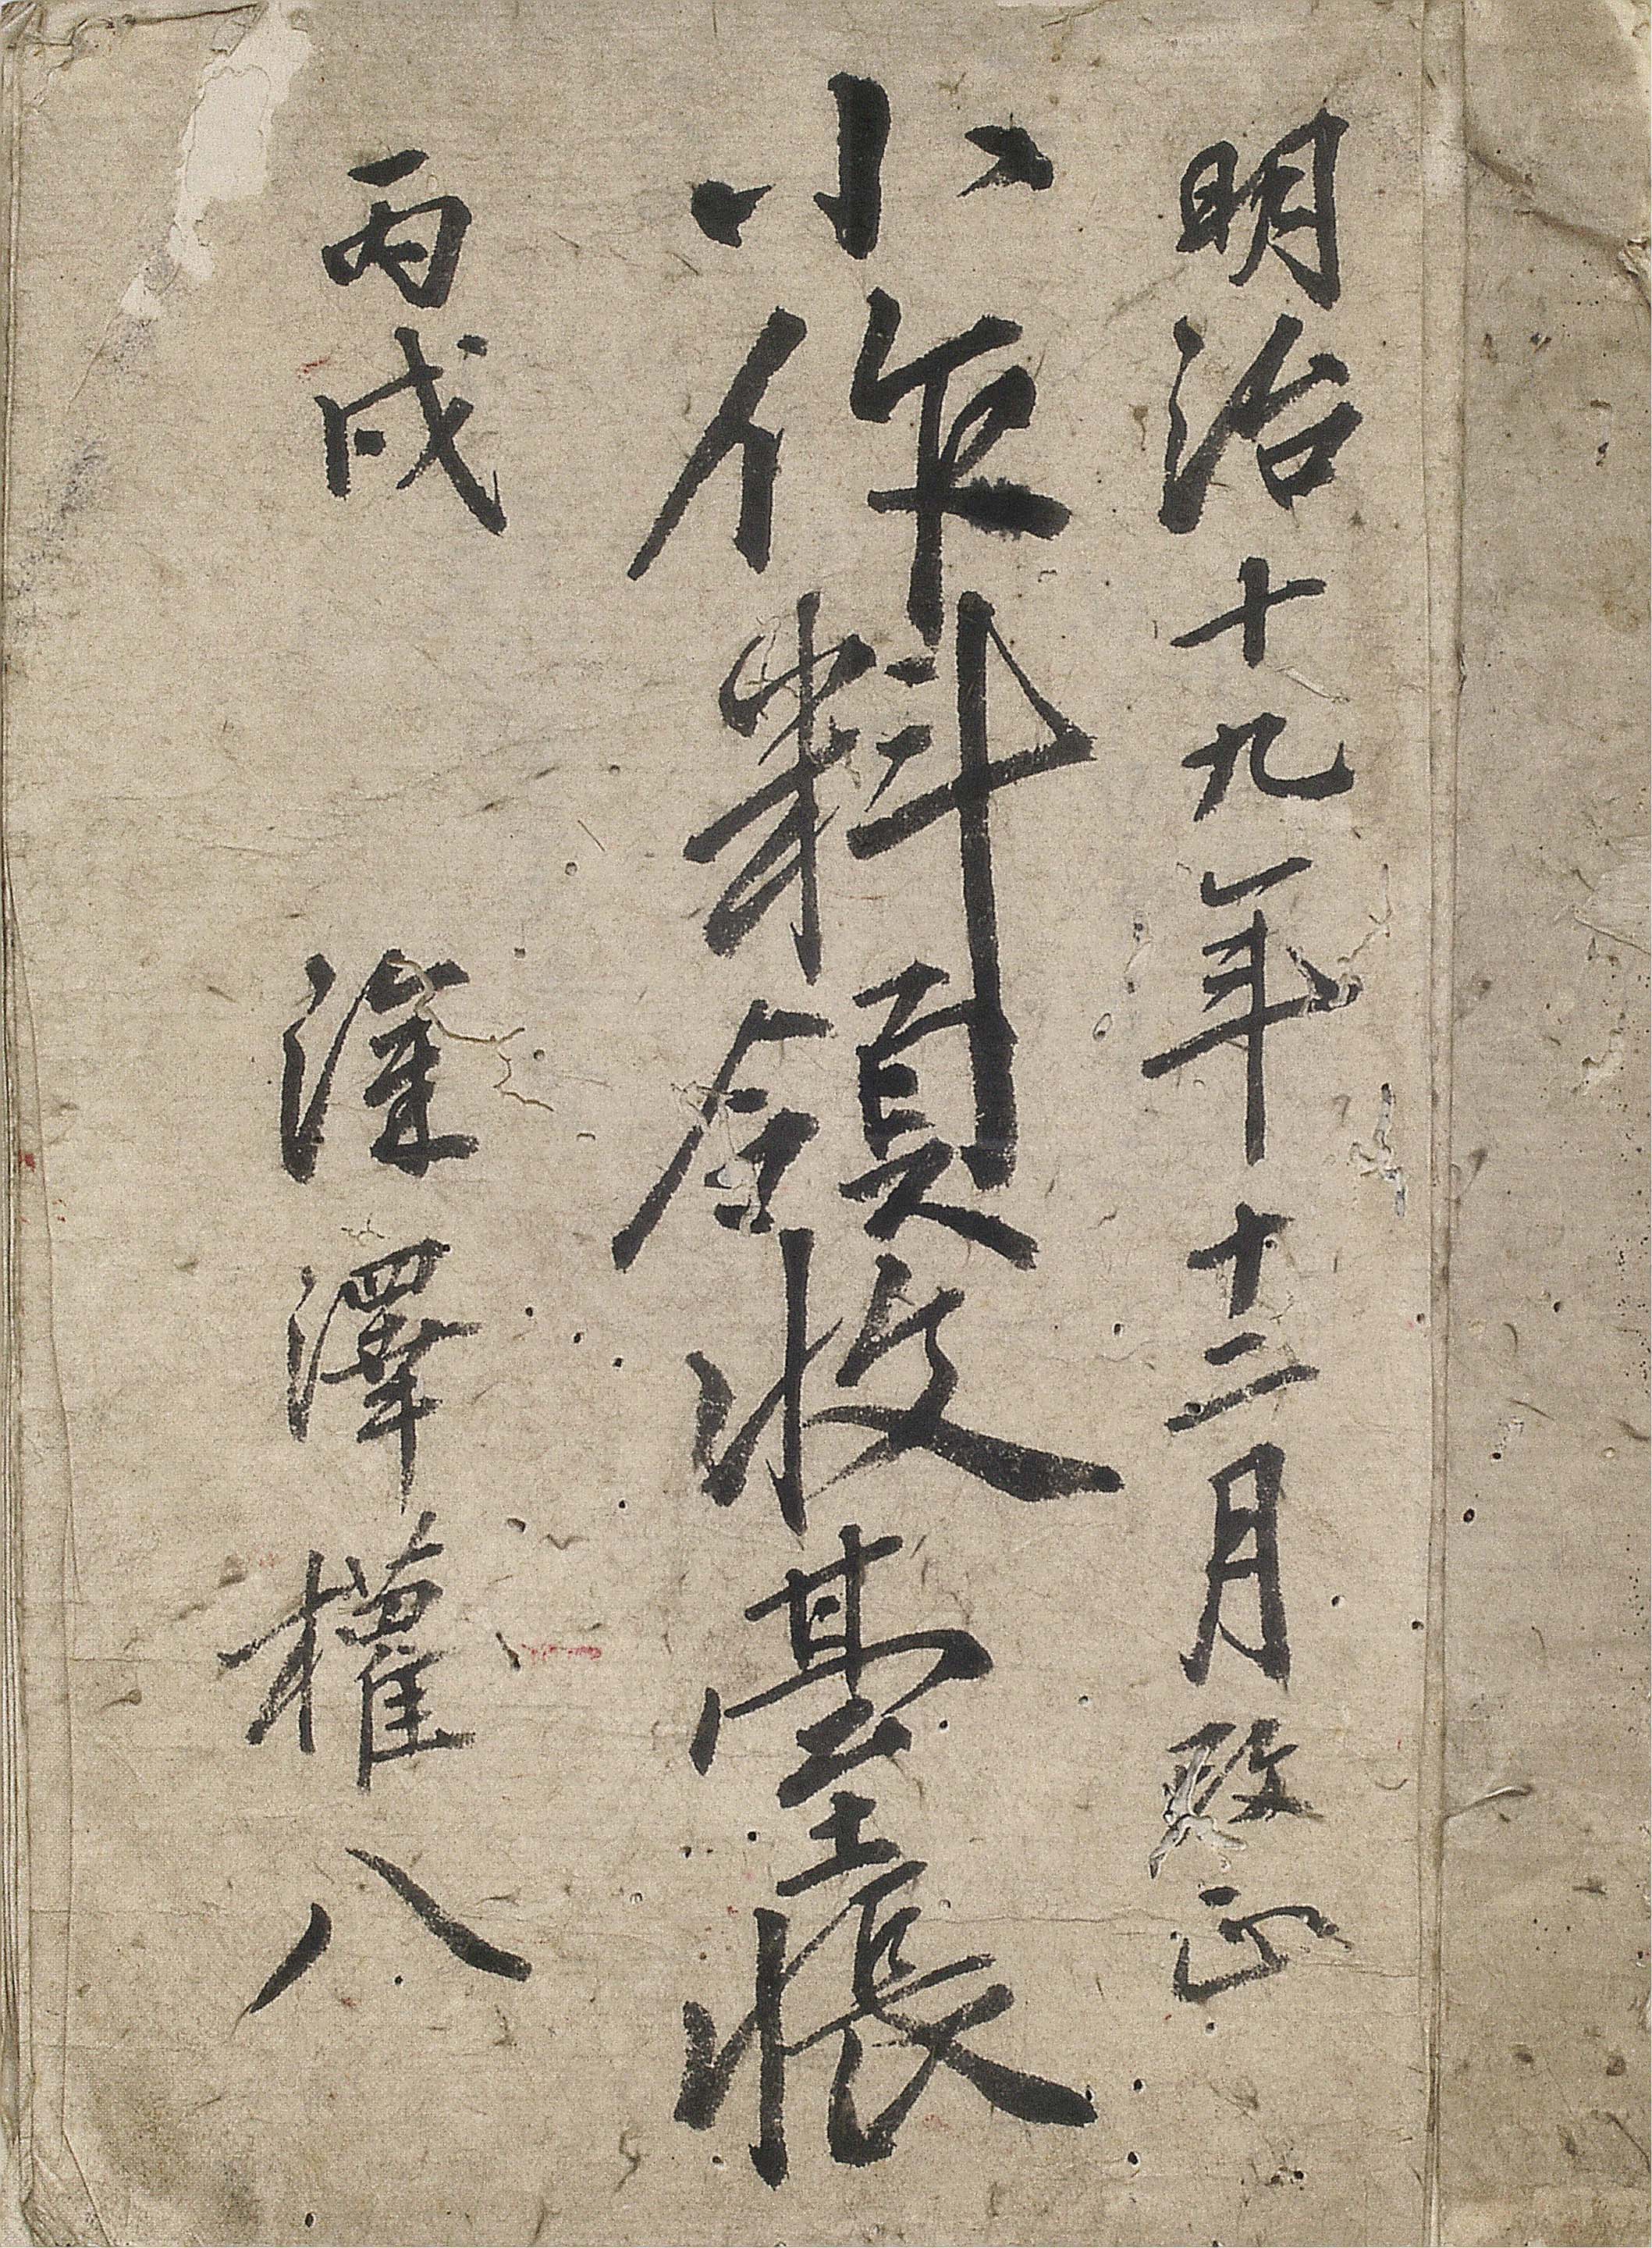 明治十九年十二月改正
小作料領收臺帳
丙戌　漥澤權八